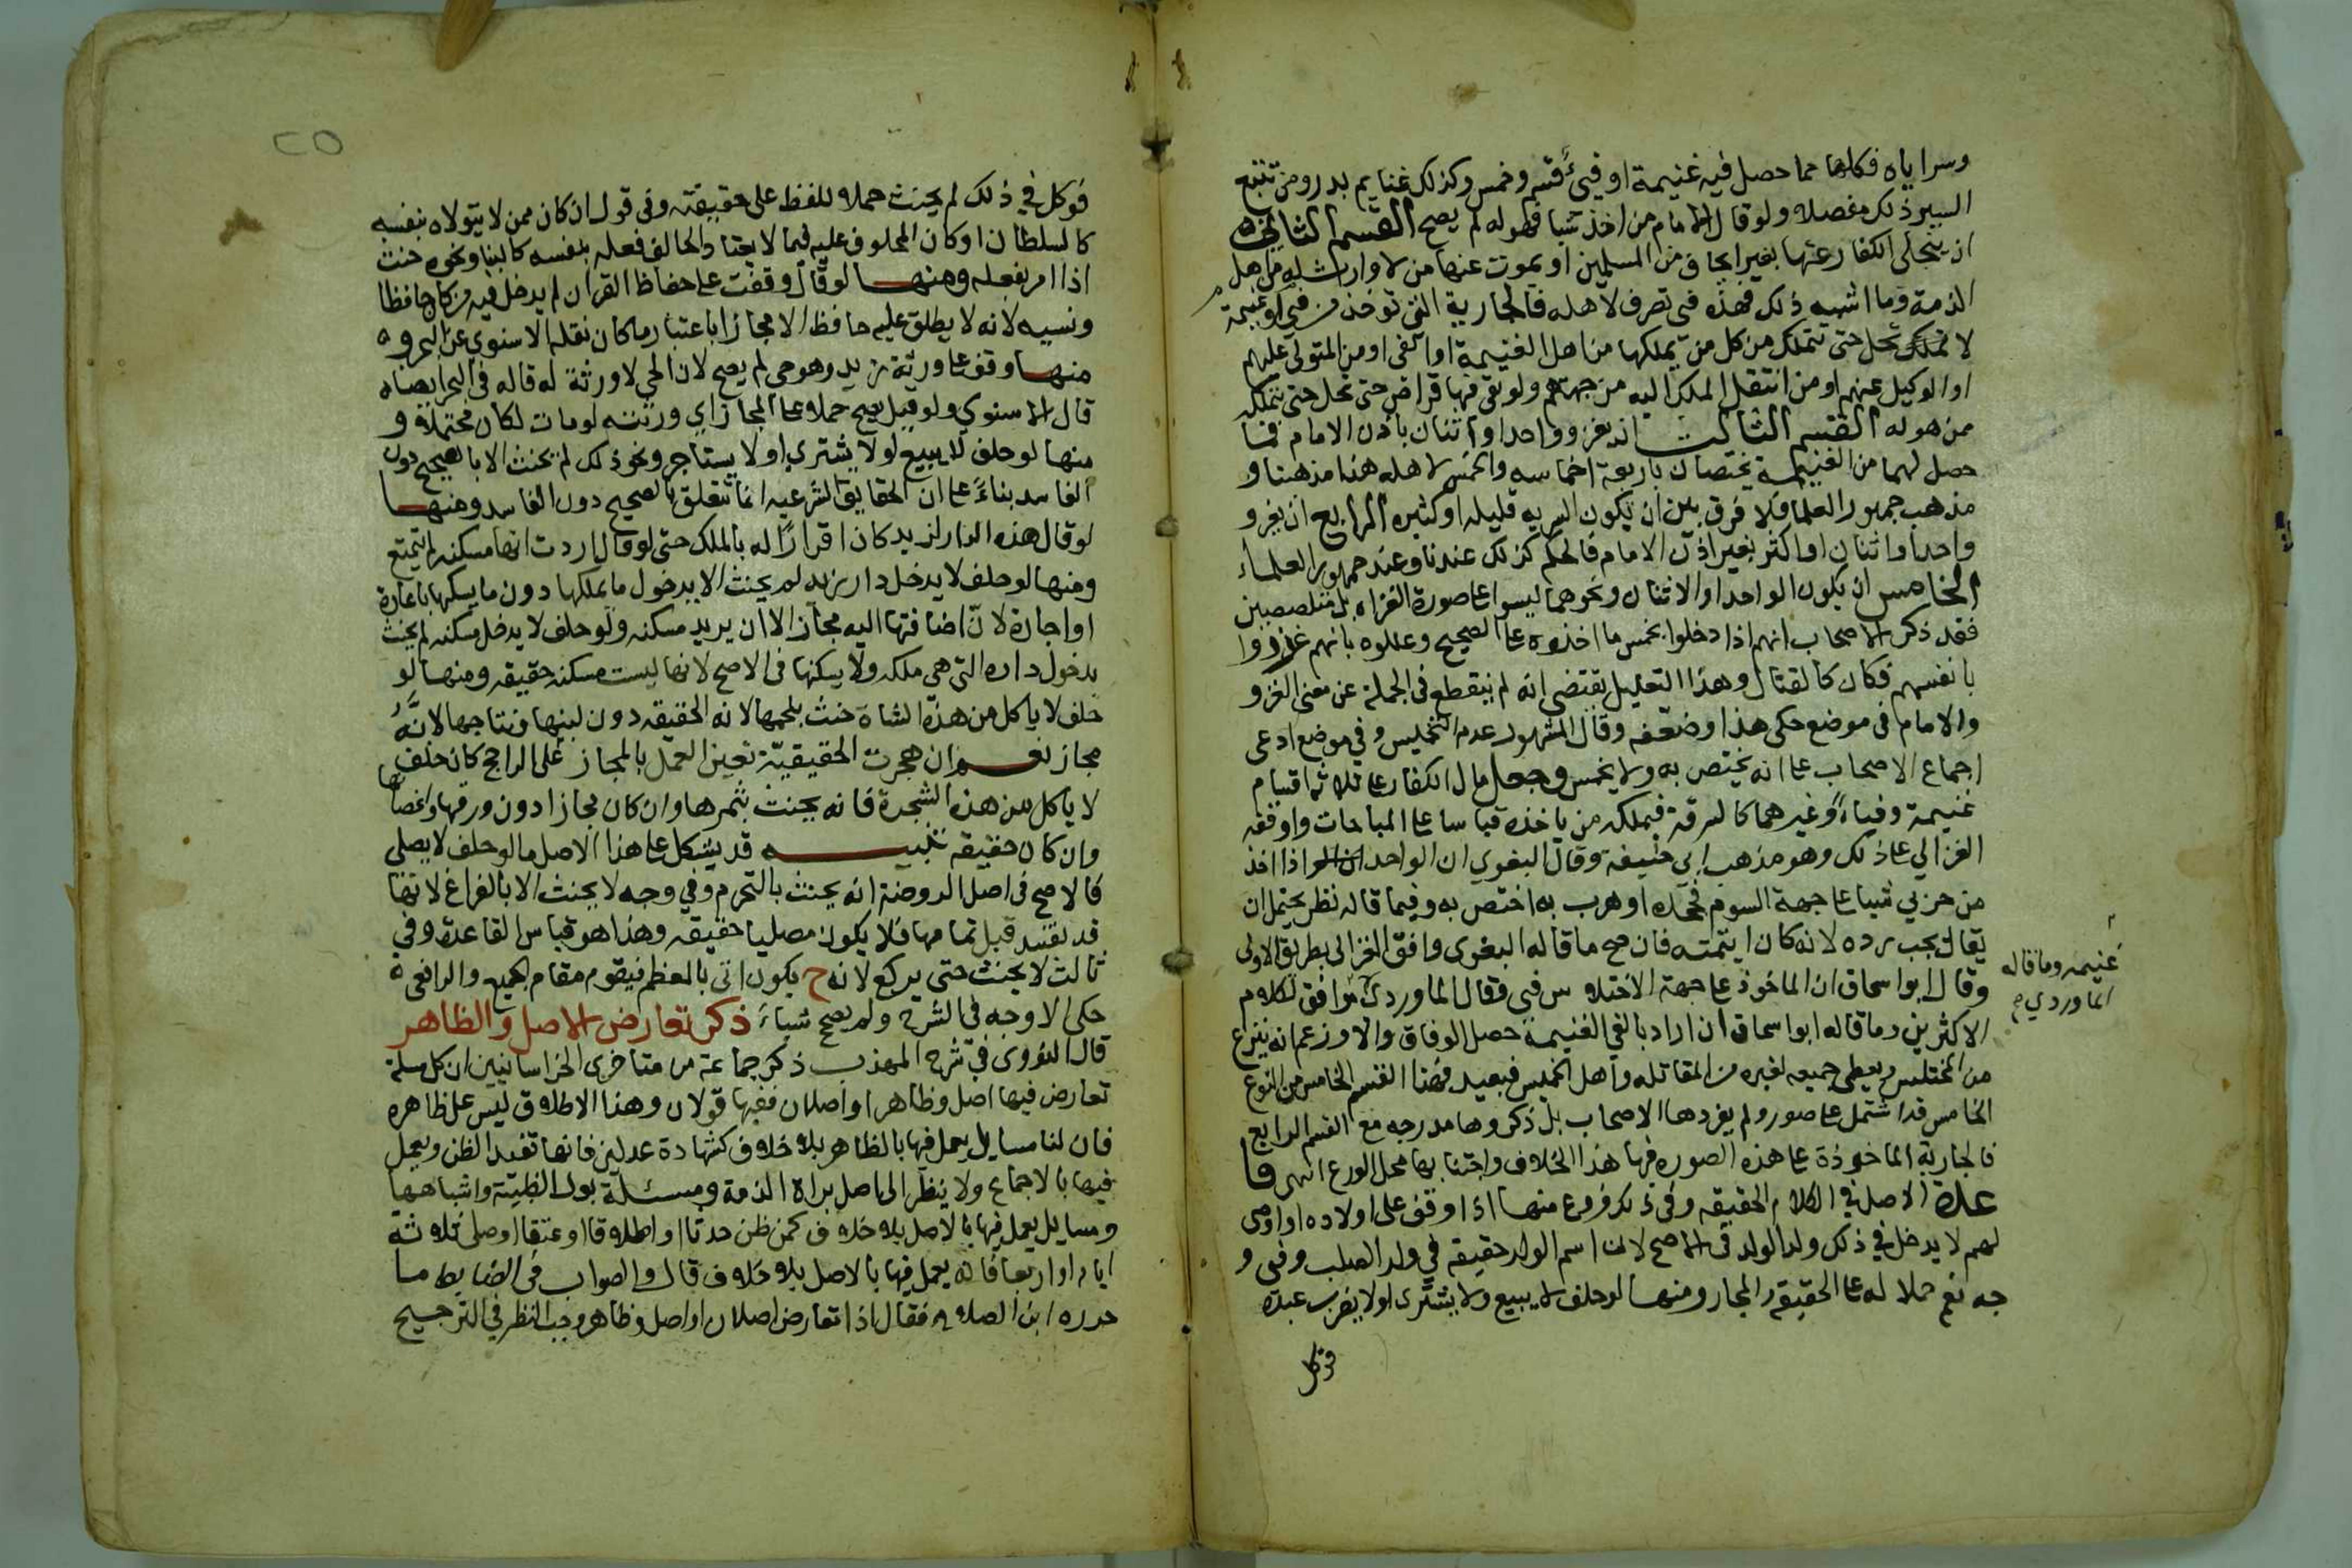 وسراياه فكلها مما حصل فيه غنيمة او فيئ قسم وخمس وكذلك غنايم بدر ومن تتبع
السير ذلك مفصلا ولو قال الامام من اخذ شيا فهو له لم يصح القسم الثاني
ان ينجلي الكفار عنها بغير ايجاف من المسلمين او يموت عنها من لا وارث له من اهل
الذمة وما اشبه ذلك فهذه فى تصرف لاهله فالجارية التى توخذ من فيئ او غنيمة
لا تحل حتى تتملك من كل من يملكها من اهل الغنيمة او الفى او من المتولى عليهم
او الوكيل عنهم او من انتقل الملك اليه من جهتهم ولو بقى فيها قراض حتى تحل حتى يتملكه
من هو له القسم الثالث ان يغزو واحد او اثنان باذن الامام فما
حصل لهما من الغنيمة يختصان باربعة اخماسه والخمس لاهله هذا مذهبنا و
مذهب جمهور العلما فلا فرق بين ان يكون السريه قليله او كثيره الرابع ان يغزو
واحد او اثنان او اكثر بغير اذن الامام فالحكم كذلك عندنا وعند جمهور العلماء
الخامس ان يكون الواحد او الاثنان ونحوهما ليسوا على صورة الغزاه بل متلصصين
فقد ذكر الاصحاب انهم اذا دخلوا يخمس ما اخذوه على الصحيح وعللوه بانهم غزووا
بانفسهم فكان كالقتال وهذا التعليل يقتضى انه لم ينقطع فى الجملة عن معنى الغزو
والامام فى موضع حكى هذا وضعفه وقال المشهور عدم التخميس وفي موضع ادعى
اجماع الاصحاب على انه يختص به ولا يخمس وجعل مال الكفار على ثلاثة اقسام
غنيمة وفياء وغيرهما كالسرقة فيملكه من ياخذه قياسا على المباحات ووافقه
الغزالي على ذلك وهو مذهب ابى حنيفة وقال البغوي ان الواحد اذا اخذ
من حربي شيا على جهة السوم فجحده او هرب به اختص به وفيما قاله نظر يحتمل ان
يقال يجب رده لانه كان ايتمنه فان صح ما قاله البغوى وافق الغزالى بطريق الاولى
وقال ابوا سحاق ان الماخوذ على جهة الاختلاس فى فقال الماوردى موافق لكلام
الاكثرين وما قاله ابوا سحاق ان اراد بالفي الغنيمة حصل الوفاق والا وزعم انه ينزع
من المختلس ويعطى جميعه لغيره من المقاتله واهل الخمس فبعيد فهذا القسم الخامس من النوع
الخامس قد اشتمل على صور ولم يفردها الاصحاب بل ذكروها مدرجه مع القسم الرابع
فالجارية الماخوذة على هذه الصوره فيها هذا الخلاف واجتنابها محل الورع انتهى قا
عدة الاصل في الكلام الحقيقه وفى ذلك فروع منها اذا وقف على اولاده او اوصى
لهم لا يدخل في ذلك ولد الولد فى الاصح لان اسم الولد حقيقه في ولد الصلب وفى و
جه نعم حملا له على الحقيقه والمجاز ومنها لو حلف لا يبيع ولا يشترى او لا يضرب عبده
فوكل
غنيمه وما قاله
الماوردي
٢٥
فوكل في ذلك لم يحنث حملا للفظ على حقيقته وفى قول ان كان ممن لا يتولاه بنفسه
كالسلطان او كان المحلوف عليه فيما لا يعتاد الحالف فعله بنفسه كالبنا ونحوه حنث
اذا امر بفعله ومنها لو قال وقفت على حفاظ القران لم يدخل فيه من كان حافظا
ونسيه لانه لا يطلق عليه حافظ الا مجازا باعتبار ما كان نقله الاسنوى عن البحر و
منها وقف على ورثة زيد وهو حى لم يصح لان الحي لا ورثة له قاله فى البحر ايضا
قال الاسنوي ولو قيل يصح حملا على المجاز اي ورثته لو مات لكان محتملا و
منها لو حلف لا يبيع او لا يشتري او لا يستاجر ونحو ذلك لم يحنث الا بالصحيح دون
الفاسد بناءً على ان الحقايق الشرعيه انما تتعلق بالصحيح دون الفاسد ومنها
لو قال هذه الدار لزيد كان اقرارًا له بالملك حتى لو قال اردت انها مسكنه لم يسمع
ومنها لو حلف لا يدخل دار زيد لم يحنث الا بدخول ما يملكها دون ما يسكنها باعارة
او اجارة لانّ اضافتها اليه مجاز الا ان يريد مسكنه ولو حلف لا يدخل مسكنه لم يحنث
بدخول داره التى هى ملكه ولا يسكنها فى الاصح لانها ليست مسكنه حقيقه ومنها لو
حلف لا ياكل من هذه الشاة حنث بلحمها لانه الحقيقه دون لبنها ونتاجها لانه
مجاز نعم ان هجرت الحقيقيّة تعين العمل بالمجاز على الراجح كان حلف
لا ياكل من هذه الشجرة فانه يحنث بثمرها وان كان مجازا دون ورقها واغصانها
وان كان حقيقه تنبيه قد يشكل على هذا الاصل ما لو حلف لا يصلى
فالاصح فى اصل الروضة انه يحنث بالتحرم وفي وجه لا يحنث الا بالفراغ لانها
قد تفسد قبل تمامها فلا يكون مصليا حقيقه وهذا هو قياس القاعدة وفي
ثالث لا يحنث حتى يركع لانه ح يكون اتى بالمعظم فيقوم مقام الجميع والرافعى
حكى الاوجه فى الشرح ولم يصح شياء ذكر تعارض الاصل والظاهر
قال النووى في شرح المهذب ذكر جماعة من متاخرى الخراسانيين ان كل مسلة
تعارض فيها اصل وظاهر او اصلان ففيها قولان وهذا الاطلاق ليس على ظاهره
فان لنا مسايل يعمل فيها بالظاهر بلا خلاف كشهادة عدلين فانها تفيد الظن ويعمل
فيها بالاجماع ولا ينظر الى اصل براة الذمة ومسئلة بول الظبية واشباهها
ومسايل يعمل فيها بالاصل بلا خلاف كمن ظن حدثا او طلاقا او عتقا او صلى ثلاثة
ايام او اربعا فانه يعمل فيها بالاصل بلا خلاف قال والصواب فى الضابط ما
حرره ابن الصلاح فقال اذا تعارض اصلان او اصل وظاهر وجب النظر في الترجيح